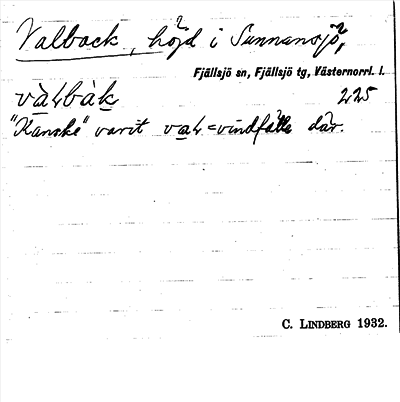 Valback, höjd i Sunnansjö,
Fjällsjö sn, Fjällsjö tg, Västernorrl. l.
vàlbàk 225
"Kanske" varit val = vindfälle där.
C. LINDBERG 1932.